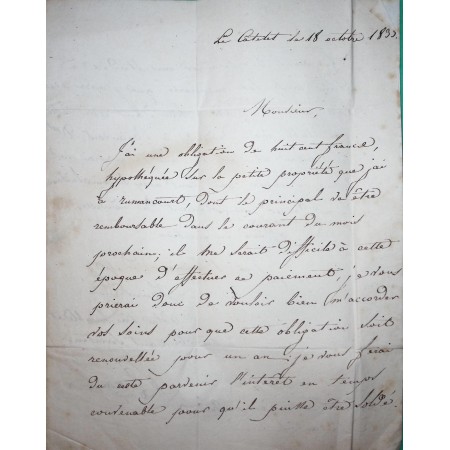 Le Catelet le 18 octobre 183
Monsieur,
J'ai une obligation de huit cent francs,
hypothéquée sur la petite propriété que j'ai
à rumaucourt, dont le principal va être
remboursable dans le courant du mois
prochain; il me serait difficile à cette
époque d'effectuer ce paiement, je vous
prierai donc de vouloir bien m'accorder
vos soins pour que cette obligation soit
renouvellée pour un an; je vous ferai
du reste parvenir l'interêt en temps
convenable pour qu'il puisse être soldé.